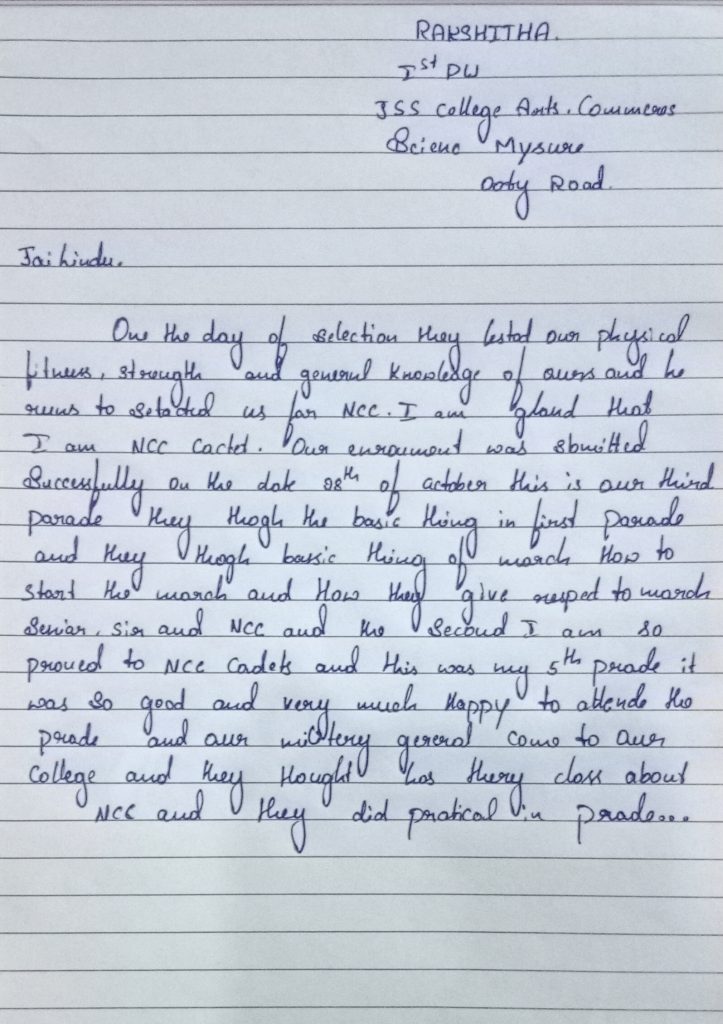 RAKSHITHA.
Ist PU
JSS College Arts. Commeros
Scienc Mysure
Ooty Road.
Jai hindu.
One the day of selection they testad our physical
fitness, strength and general knowledge of ouers and he
to us for NCC. I am gland that
I am NCC Cactet. Our enroument was sbmitted
Successfully on the date 28th of actober this is our third
parade they thogh the basic thing in first parade
and they thogh bassic thing of march How to
Start the march and How they give resped to march
Senior, Sir and NCC and the Second I am so
proued to NCC Cadets and this was my 5th prade it
was so good and very much Happy to attende the
prade and our miltery gereral come to our
College and they thought has thery class about
NCC and they did pratical in prade...